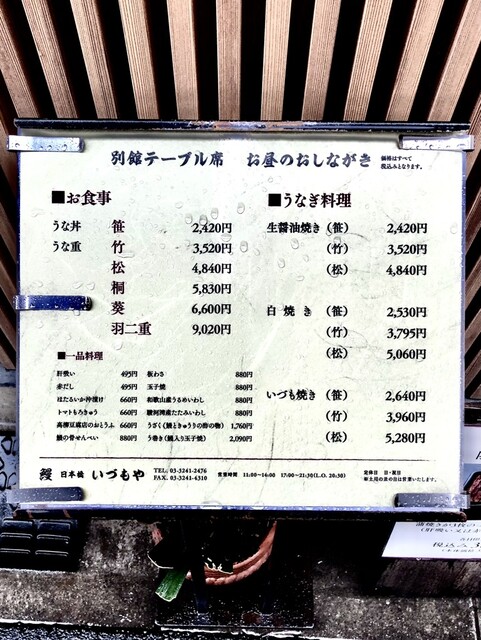 別館テーブル席 お昼のおしながき 価格はすべて
税込みとなります。
■お食事
うな丼 笹 2,420円
うな重 竹 3,520円
松 4,840円
桐 5,830円
葵 6,600円
羽二重 9,020円
■一品料理
肝吸い 495円
赤だし 495円
ほたるいか沖漬け 660円
トマトもろきゅう 660円
高柳豆腐店のおとうふ 660円
鰻の骨せんべい 880円
板わさ 880円
玉子焼 880円
和歌山産うるめいわし 880円
駿河湾産たたみいわし 880円
うざく(鰻ときゅうりの酢の物) 1,760円
う巻き(鰻入り玉子焼) 2,090円
■うなぎ料理
生醤油焼き (笹) 2,420円
(竹) 3,520円
(松) 4,840円
白焼き (笹) 2,530円
(竹) 3,795円
(松) 5,060円
いづも焼き (笹) 2,640円
(竹) 3,960円
(松) 5,280円
鰻 日本橋 いづもや
TEL. 03-3241-2476
FAX. 03-3241-4310
営業時間 11:00~14:00 17:00~21:30(L.O. 20:30)
定休日 日・祝日
※土用の丑の日は営業いたします。
税込み